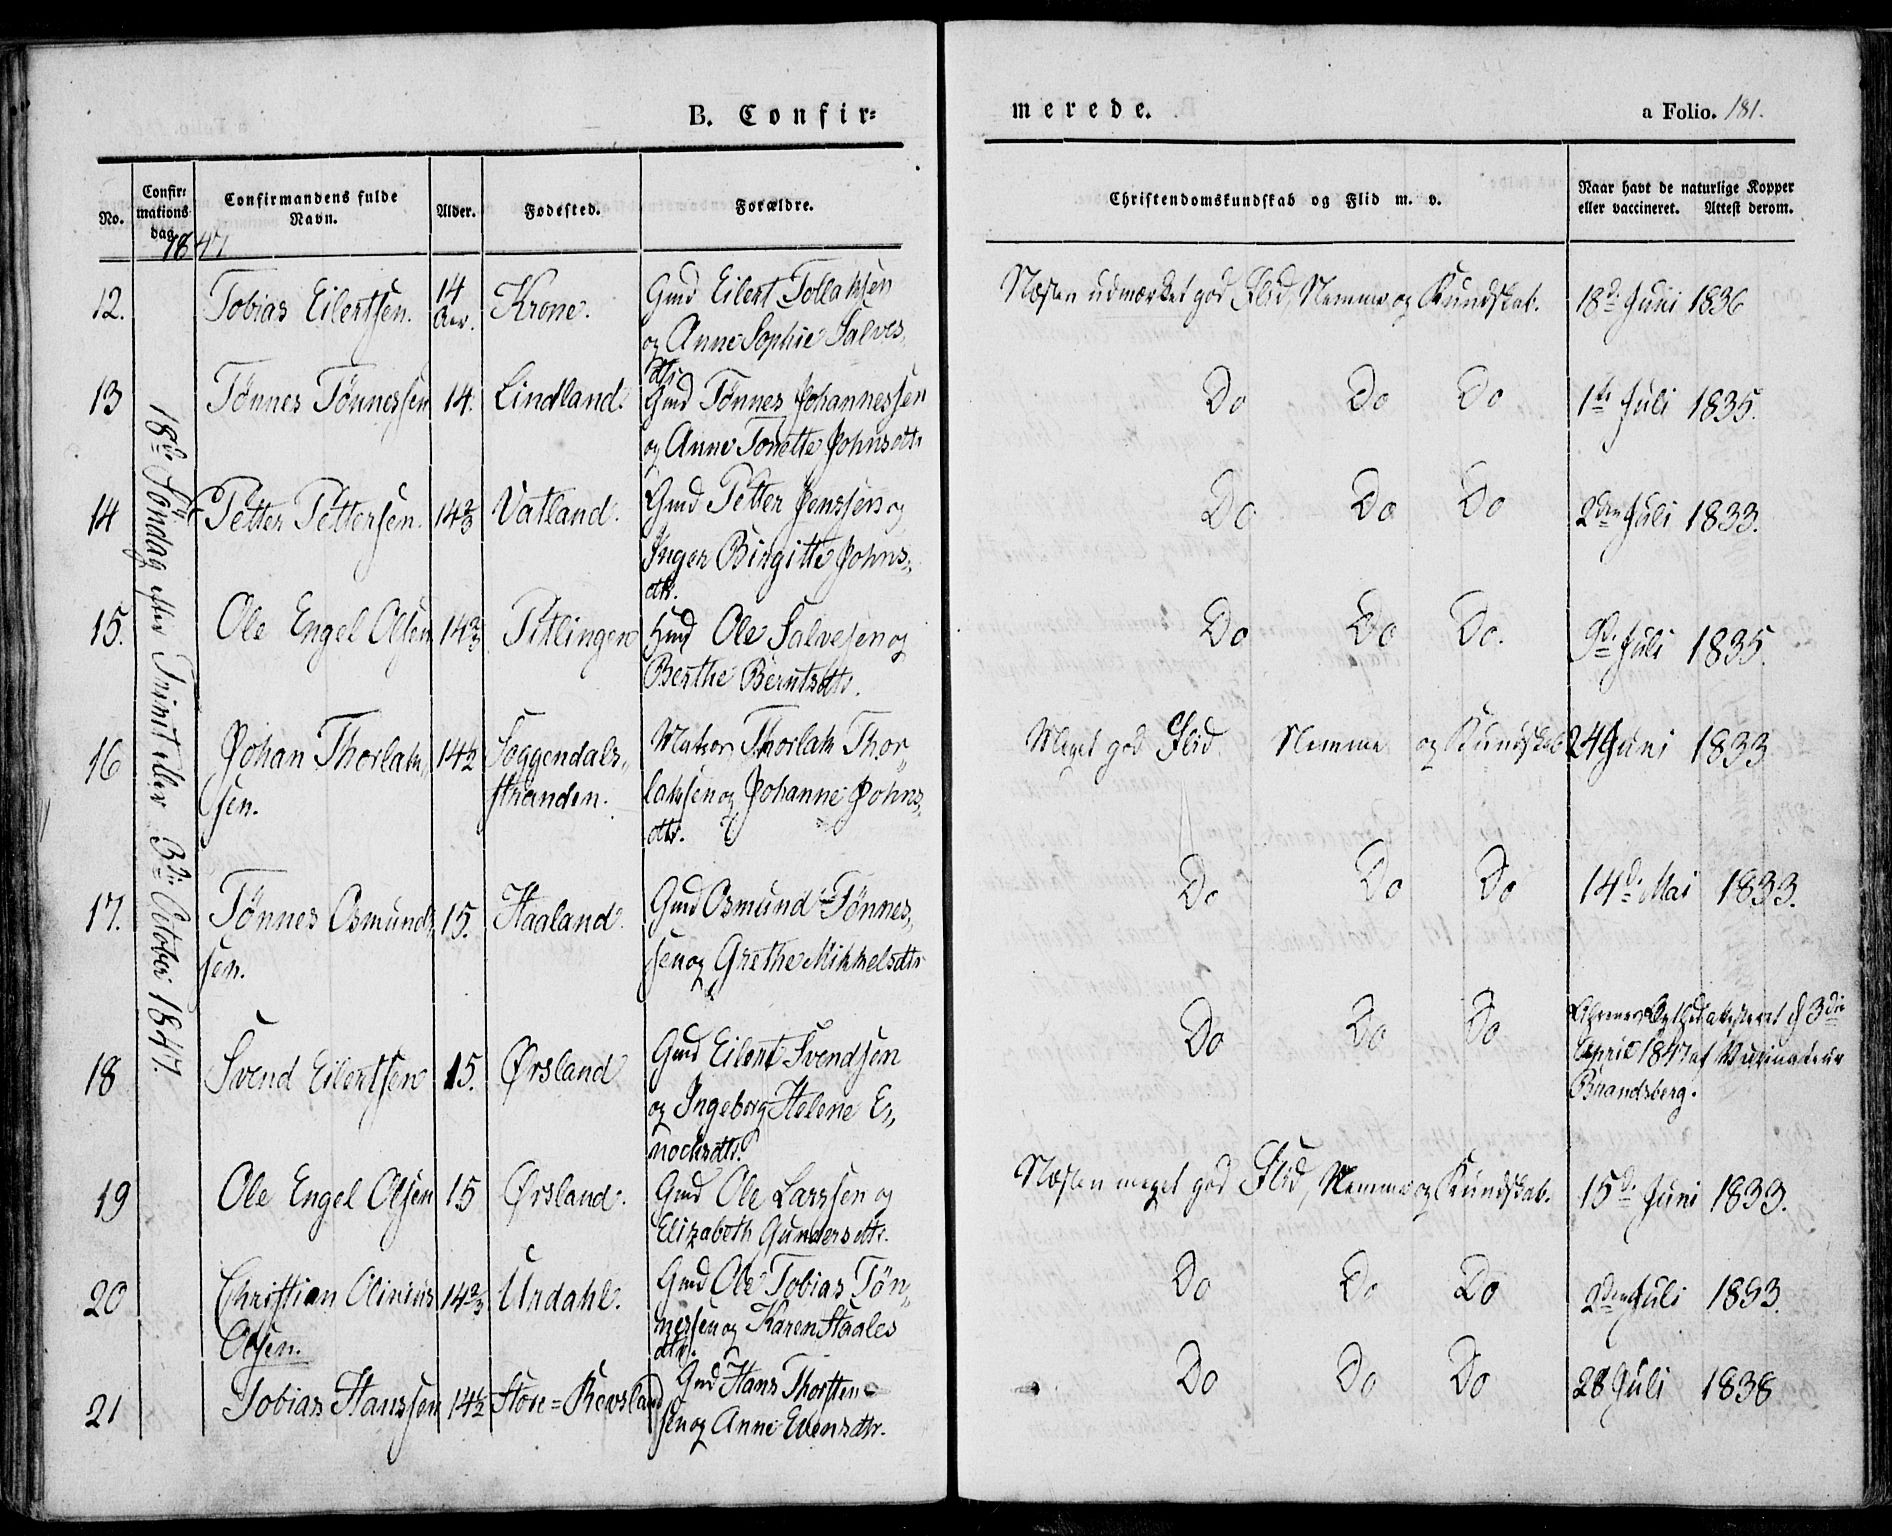 B. Confir=
merede.
a Folio. 181.
No.
Confir=
mations
dag.
Confirmandens fulde
Navn.
Alder.
Fodested.
Forældre.
Christendomskundskab og Flid m. v.
Naar havt de naturlige Kopper
eller vaccineret. Attest derom.
1847
18de Søndag efter Trinit eller 3die October 1847.
12.
Tobias Eilertsen.
14
Aar.
Krone.
Gmd Eilert Tollaksen
og Anne Sophie Salves
dtr
Næsten udmærket god Flid, Nemme og Kundskab.
18de Juni 1836
13
Tønnes Tønnessen
14.
Lindland.
Gmd Tønnes Johannessen
og Anne Tonette Johnsdtr
Do Do Do
1ste Juli 1835.
14
Petter Pettersen.
14 2/3
Vatland.
Gmd Petter Jenssen og
Inger Birgitte Johns=
dtr.
Do Do Do
2den Juli 1833.
15.
Ole Engel Olsen
14 2/3
Pitlingen
Hmd Ole Salvesen og
Berthe Berntsdtr.
Do Do Do.
9de Juli 1835.
16
Johan Thorlak=
sen.
14 1/2
Soggendals=
stranden.
Matros Thorlak Thor=
laksen og Johanne Johns=
dtr.
Meget god Flid Nemme og Kundskab
24 Juni 1833
17.
Tønnes Osmunds=
sen.
15.
Haaland.
Gmd Osmund Tønnes=
sen og Grethe Mikkelsdtr
Do Do Do
14de Mai 1833.
18
Svend Eilertsen
15.
Ørsland
Gmd Eilert Svendsen
og Ingeborg Helene E=
nochsdtr.
Do Do Do
attesteret d 3die
April 1847 af Vaccinateur
Brandsberg.
19
Ole Engel Olsen
15
Ørsland.
Gmd Ole Larssen og
Elizabeth Gundersdtr.
Næsten meget god Flid, Nemme og Kundskab.
15de Juni 1833.
20
Christian Olinius
Olsen.
14 2/3
Urdahl.
Gmd Ole Tobias Tøn=
nessen og Karen Staales
dtr.
Do Do Do
2den Juli 1833.
21
Tobias Hanssen
14 1/2
Store=Revsland
Gmd Hans Thorsten=
sen og Anne Evensdtr.
Do Do Do
28 Juli 1838